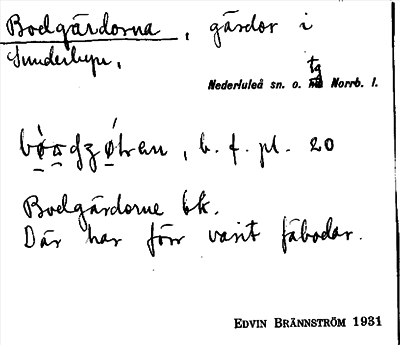 Bodgärdorna, gärdor i
Sunderbyn,
tg
Nederluleå sn. o. Norrb. l.
, b. f. pl. 20
Bodgärdorne bk.
Där har förr varit fäbodar.
EDVIN BRÄNNSTRÖM 1931